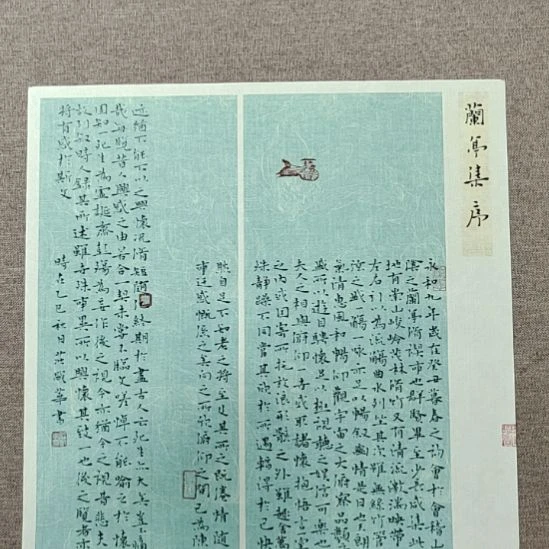 蘭亭集序
永和九年歲在癸丑暮春之初會于會稽山
陰之蘭亭脩禊事也群賢畢至少長咸集此
地有崇山峻嶺茂林脩竹又有清流激湍映帶
左右引以為流觴曲水列坐其次雖無絲竹管
弦之盛一觴一詠亦足以暢敘幽情是日也天朗
氣清惠風和暢仰觀宇宙之大俯察品類
盛所以遊目騁懷足以極視聽之娛信可樂也
夫人之相與俯仰一世或取諸懷抱悟言一室
之內或因寄所託放浪形骸之外雖趣舍萬
殊靜躁不同當其欣於所遇輒得於己快
然自足不知老之將至及其所之既惓情隨
事遷感慨係之矣向之所欣俯仰之間已為陳
迹猶不能不以之興懷況脩短隨化終期於盡古人云死生亦大矣豈不痛
哉每覽昔人興感之由若合一契未嘗不臨文嗟悼不能喻之於懷
固知一死生為虛誕齊彭殤為妄作後之視今亦猶今之視昔悲夫
故列敘時人錄其所述雖世殊事異所以興懷其致一也後之覽者亦
將有感於斯文
時在乙巳秋日書